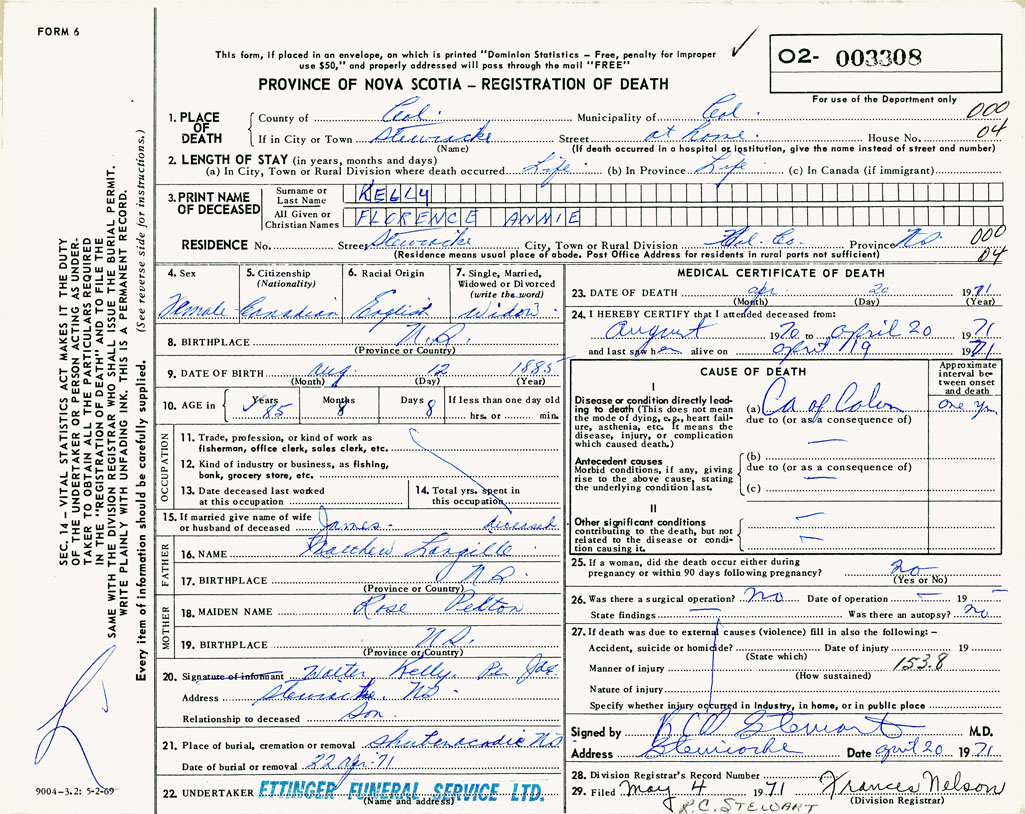 FORM 6
This form, if placed in an envelope, on which is printed "Dominion Statistics – Free, penalty for improper
use $50," and properly addressed will pass through the mail "FREE"
PROVINCE OF NOVA SCOTIA – REGISTRATION OF DEATH
02- 003308
For use of the Department only
1. PLACE OF DEATH County of Col. Municipality of Col. 000
If in City or Town Stewiacke Street at home. House No. 04
(Name) (If death occurred in a hospital or institution, give the name instead of street and number)
2. LENGTH OF STAY (in years, months and days)
(a) In City, Town or Rural Division where death occurred Life (b) In Province Life (c) In Canada (if immigrant)
3. PRINT NAME OF DECEASED Surname or Last Name KELLY
All Given or Christian Names FLORENCE ANNIE
RESIDENCE No. Street Stewiacke City, Town or Rural Division Col. Co. Province N.S. 000
(Residence means usual place of abode. Post Office Address for residents in rural parts not sufficient) 04
4. Sex 5. Citizenship (Nationality) 6. Racial Origin 7. Single, Married, Widowed or Divorced (write the word)
Female Canadian English Widow.
8. BIRTHPLACE N.S.
(Province or Country)
9. DATE OF BIRTH Aug. 12 1885
(Month) (Day) (Year)
10. AGE in Years 85 Months 8 Days 8 If less than one day old
hrs. or min.
OCCUPATION
11. Trade, profession, or kind of work as
fisherman, office clerk, sales clerk, etc.
12. Kind of industry or business, as fishing,
bank, grocery store, etc.
13. Date deceased last worked
at this occupation
14. Total yrs. spent in
this occupation
15. If married give name of wife
or husband of deceased James. deceased
FATHER
16. NAME Matthew Langille
17. BIRTHPLACE N.S.
(Province or Country)
MOTHER
18. MAIDEN NAME Rose Pelton
19. BIRTHPLACE N.S.
(Province or Country)
20. Signature of informant Walter Kelly. Per Jas.
Address Stewiacke, N.S.
Relationship to deceased Son.
21. Place of burial, cremation or removal Shubenacadie N.S.
Date of burial or removal 22 Apr. 71
22. UNDERTAKER ETTINGER FUNERAL SERVICE LTD.
(Name and address)
MEDICAL CERTIFICATE OF DEATH
23. DATE OF DEATH Apr. 20 1971
(Month) (Day) (Year)
24. I HEREBY CERTIFY that I attended deceased from:
August 1970 to April 20 1971
and last saw her alive on April 19 1971
CAUSE OF DEATH
Approximate
interval be-
tween onset
and death
I
Disease or condition directly lead-
ing to death (This does not mean
the mode of dying, e.g., heart fail-
ure, asthenia, etc. It means the
disease, injury, or complication
which caused death.)
(a) Ca of Colon one yr
due to (or as a consequence of)
Antecedent causes
Morbid conditions, if any, giving
rise to the above cause, stating
the underlying condition last.
(b)
due to (or as a consequence of)
(c)
II
Other significant conditions
contributing to the death, but not
related to the disease or condi-
tion causing it.
25. If a woman, did the death occur either during
pregnancy or within 90 days following pregnancy? no
(Yes or No)
26. Was there a surgical operation? no Date of operation — 19 —
State findings — Was there an autopsy? no
27. If death was due to external causes (violence) fill in also the following: –
Accident, suicide or homicide? Date of injury 19
(State which)
Manner of injury 153.8
(How sustained)
Nature of injury
Specify whether injury occurred in industry, in home, or in public place
Signed by Stewart M.D.
Address Stewiacke Date April 20 1971
28. Division Registrar's Record Number
29. Filed May 4 1971 Frances Nelson
R.C. STEWART (Division Registrar)
9004-3.2: 5-2-69
SEC. 14 – VITAL STATISTICS ACT MAKES IT THE DUTY
OF THE UNDERTAKER OR PERSON ACTING AS UNDER-
TAKER TO OBTAIN ALL THE PARTICULARS REQUIRED
IN THE "REGISTRATION OF DEATH" AND TO FILE THE
SAME WITH THE DIVISION REGISTRAR WHO SHALL ISSUE THE BURIAL PERMIT.
WRITE PLAINLY WITH UNFADING INK. THIS IS A PERMANENT RECORD.
Every item of information should be carefully supplied. (See reverse side for instructions.)